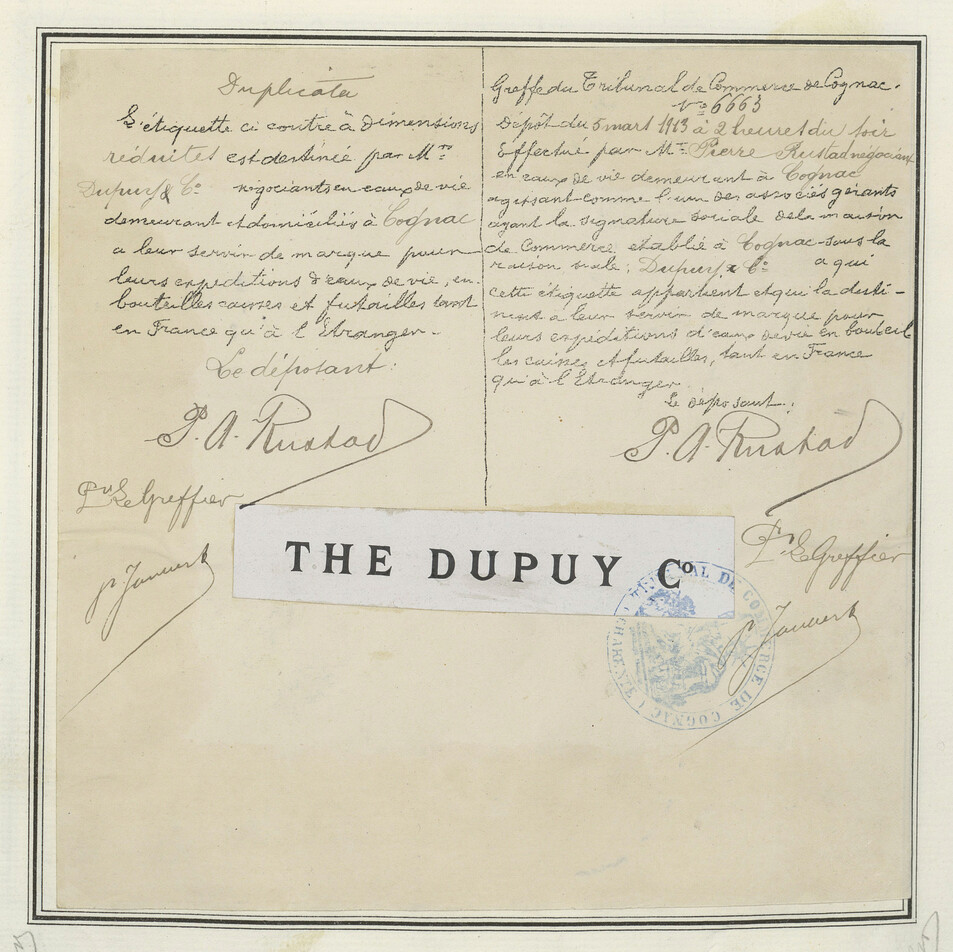 Duplicata
L'étiquette ci contre à Dimensions
réduites est destinée par Mrs
Dupuy & Co négociants en eaux de vie
demeurant et domiciliés à Cognac
a leur servir de marque pour
leurs expeditions d'eaux de vie, en
bouteilles caisses et futailles tant
en France qu'à l'Etranger.
Le déposant:
P. A. Rustad
Pr Le Greffier
Greffe du Tribunal de Commerce de Cognac.
No 6663
Dépôt du 5 mars 1913 à 2 heures du soir
Effectué par Mr Pierre Rustad négociant
en eaux de vie demeurant à Cognac
agissant comme l'un des associés gérants
ayant la signature sociale de la maison
de Commerce etablie à Cognac sous la
raison sociale; Dupuy & Co a qui
cette étiquette appartient et qui la desti-
nent a leur servir de marque pour
leurs expéditions d'eaux de vie en bouteil
les caisses et futailles, tant en France
qu'à l'Etranger
Le déposant:
P. A. Rustad
Pr Le Greffier
THE DUPUY Co
TRIBUNAL DE COMMERCE DE COGNAC (CHARENTE)